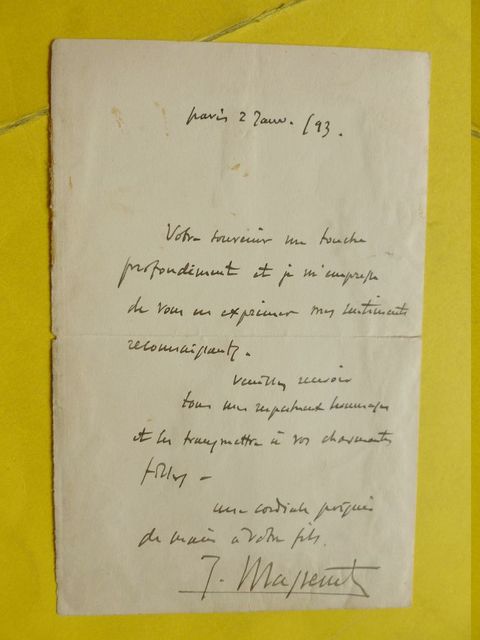 Paris 2 Janv. /93.
Votre souvenir me touche
profondément et je m'empresse
de vous en exprimer mes sentiments
reconnaissants.
Veuillez recevoir
tous mes respectueux hommages
et les transmettre à vos charmantes
filles –
une cordiale poignée
de main à votre fils.
J. Massenet